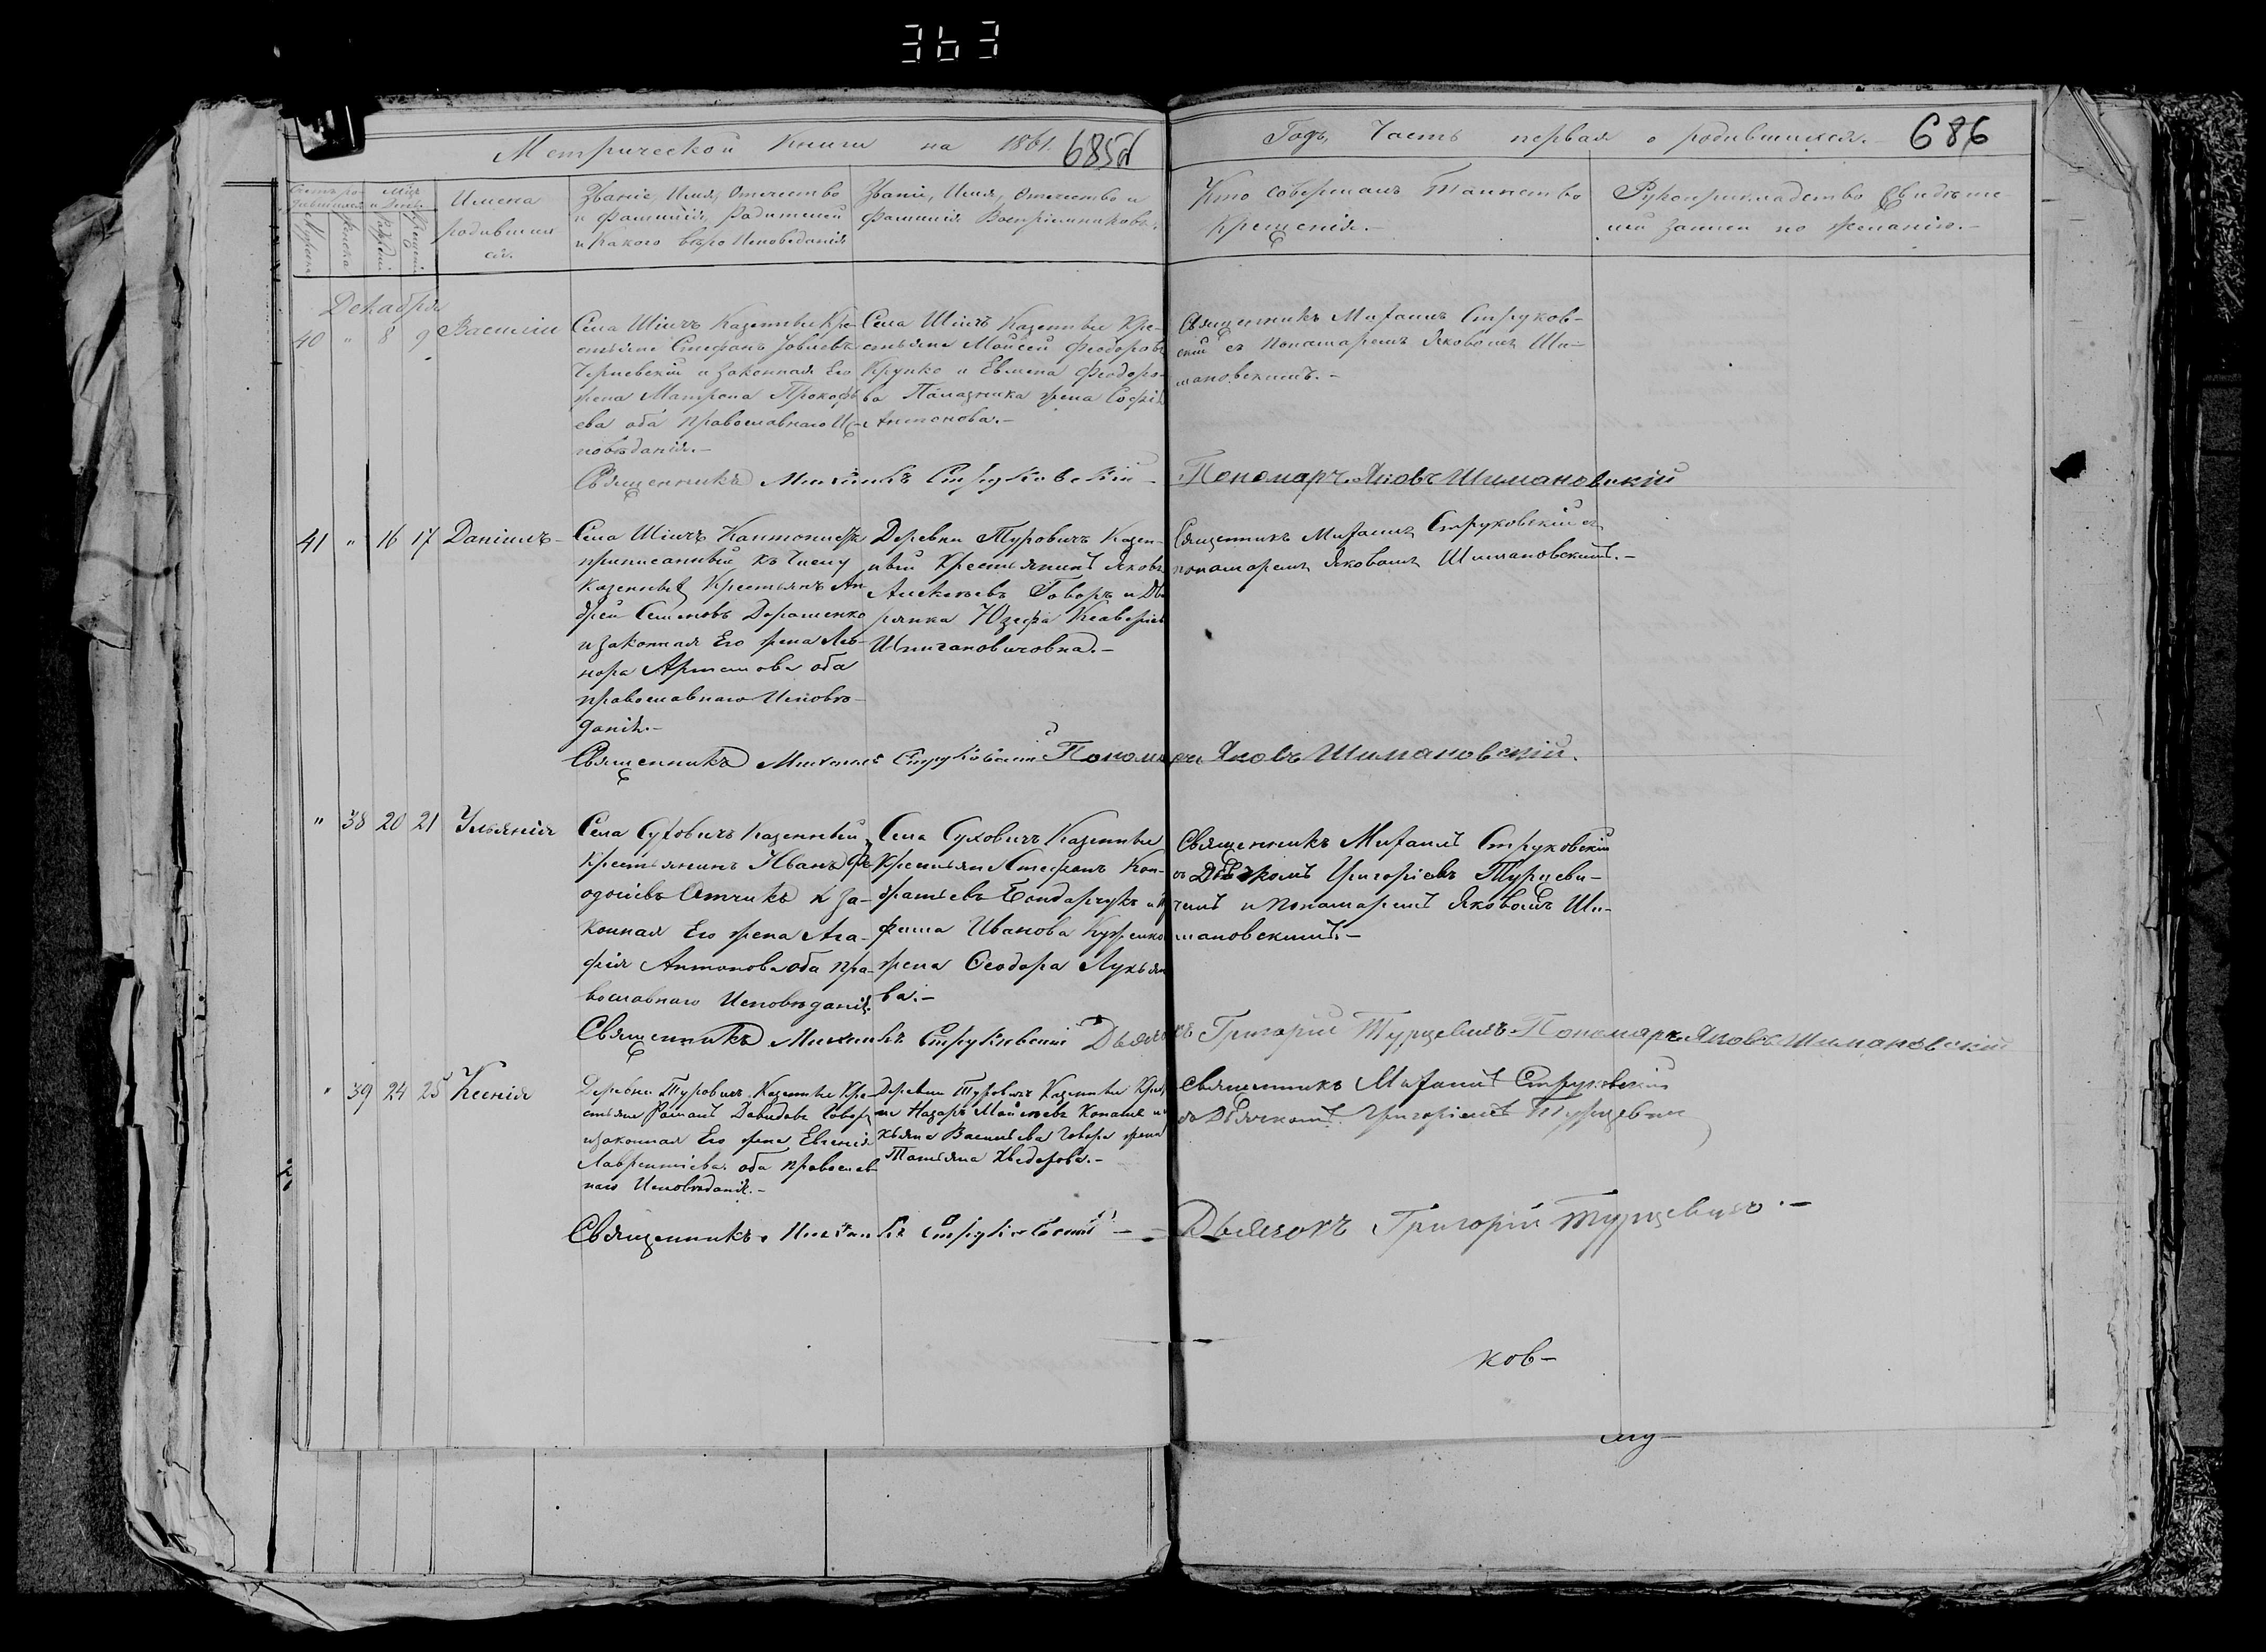 363
Метрической Книги на 1861. 685об
Годъ, Часть первая о родившихся.- 686
Счетъ ро-
дившихся
Мѣс.
и День
Имена
родивших
ся.
Званіе, Имя, Отчество
и Фамилія, Родителей
и Какого вѣро Исповеданія
Званіе, Имя, Отчество и
Фамилия Воспріемниковъ.
Кто совершалъ Таинство
Крещенія.-
Рукоприкладство Свидѣте
лей записи по желанію.-
Декабря
40 " 8 9 Василій
Села Казенные Кре-
стьяне Стефанъ
и законная Его
жена Матрона Прокофь
ева оба Православнаго Ис-
повѣданія.-
Села Казенные Кре-
стьяне Моисей Феодоровъ
Крупко и Феодоро-
ва жена Софія
Антонова.-
Священникъ Михаилъ Струков-
скій съ Пономаремъ Яковомъ Ши-
мановскимъ.-
Священникъ Михаилъ Струковскій - Пономаръ Яковъ Шимановскій
41 " 16 17 Даніилъ-
Села
приписанный къ Числу
Казенныхъ Крестьянъ Ан
дрей Семеновъ Дорошенко
и законная Его жена
Артемова оба
православнаго Исповѣ-
данія.-
Деревни Туровичъ Казен-
ный Крестьянинъ Яковъ
Алексѣевъ Говоръ и Дво
рянка Юзефа
Священникъ Михаилъ Струковскій съ
пономаремъ Яковомъ Шимановскимъ.-
Священникъ Михаилъ Струковскій Пономарь Яковъ Шимановскій.
" 38 20 21 Ульянія
Села Суховичъ Казенный
Крестьянинъ Иванъ Фе
одосіевъ и за-
конная Его жена Ага-
фія Антонова оба пра-
вославнаго Исповѣданія.
Села Суховичъ Казенные
Крестьяне Стефанъ Кон-
дратьевъ Бондарчукъ и
Иванова
жена Феодора Лукьяно
ва.-
Священникъ Михаилъ Струковскій
съ Дьячкомъ Григоріевъ Турцеви-
чемъ и пономаремъ Яковомъ Ши-
мановскимъ.-
Священникъ Михаилъ Струковскій Дьячокъ Григорій Турцевичъ Пономаръ Яковъ Шимановскій
" 39 24 25 Ксенія
Деревни Туровичъ Казенные Кре-
стьяне Романъ Давидовъ Говоръ
и законная Его жена Евгенія
Лаврентіева оба православ-
наго Исповѣданія.-
Деревни Туровичъ Казенные Кресть
не Назаръ Моисеевъ и
Васильева Говора жена
Татьяна Хведорова.-
Священникъ Михаилъ Струковскій
съ Дьячкомъ Григоріемъ Турцевичемъ
Священникъ Михаилъ Струковскій - Дьячокъ Григорій Турцевичъ.-
ков-
му-